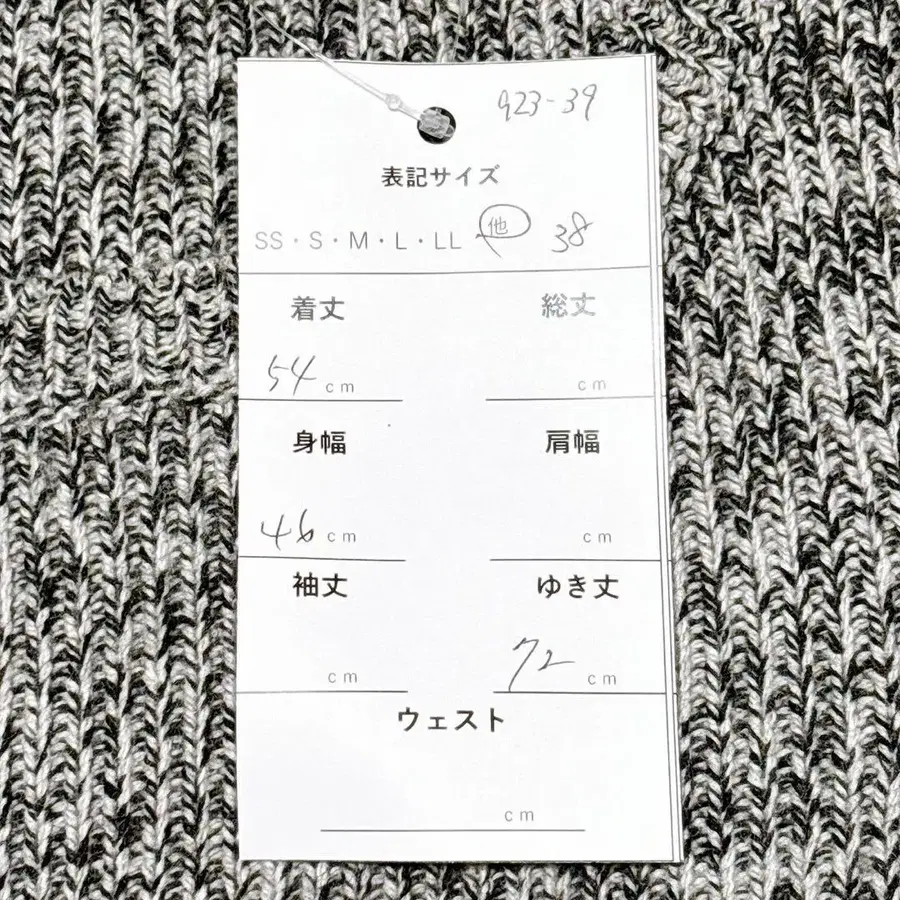 923-39
表記サイズ
SS・S・M・L・LL 他 38
着丈 総丈
54 cm cm
身幅 肩幅
46 cm cm
袖丈 ゆき丈
cm 72 cm
ウェスト
cm